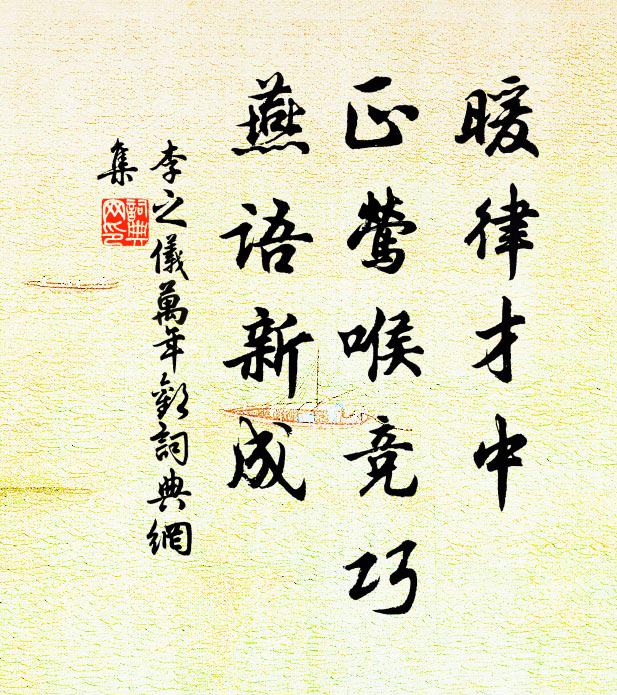 暖律才中
正鶯喉竞巧
燕語新成
李之儀萬年歡詞典網
集
詞典
网印